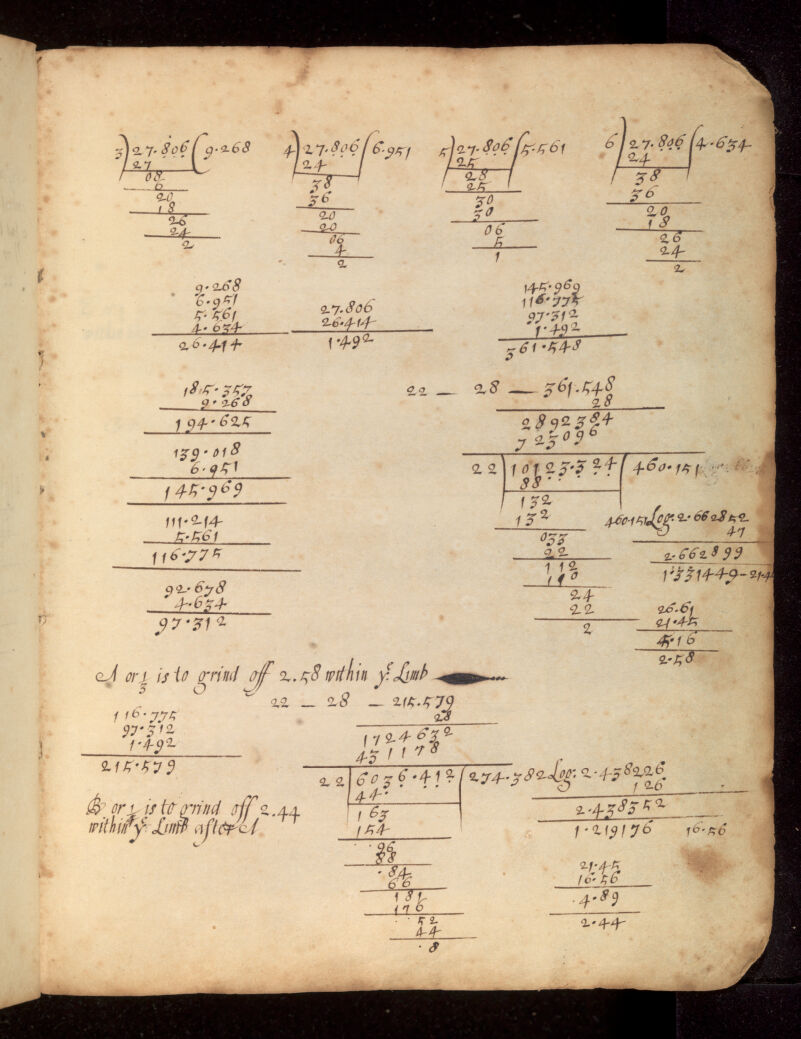 3) 27.806 ( 9.268
27
08
6
20
18
26
24
2
4) 27.806 ( 6.951
24
38
36
20
20
06
4
2
5) 27.806 ( 5.561
25
28
25
30
30
06
5
1
6) 27.806 ( 4.634
24
38
36
20
18
26
24
2
9.268
6.951
5.561
4.634
26.414
27.806
26.414
1.492
145.969
116.775
97.312
1.492
361.548
185.357
9.268
194.625
139.018
6.951
145.969
111.214
5.561
116.775
92.678
4.634
97.312
22 — 28 — 361.548
28
2892384
723096
22 | 10123.324 ( 460.151
88
132
132
033
22
112
110
24
22
2
460.151 Log. 2.662852
47
2.662899
1.331449 – 21.4
26.61
21.45
5.16
2.58
A or 1/3 is to grind off 2.58 within yᵉ Limb
22 — 28 — 215.579
28
1724632
431178
116.775
97.312
1.492
215.579
22 | 6036.412 ( 274.382 Log. 2.438226
126
2.438352
1.219176 16.56
44
163
154
96
88
84
66
181
176
52
44
8
21.45
16.56
4.89
2.44
B or is to grind off 2.44
within yᵉ Limb after A